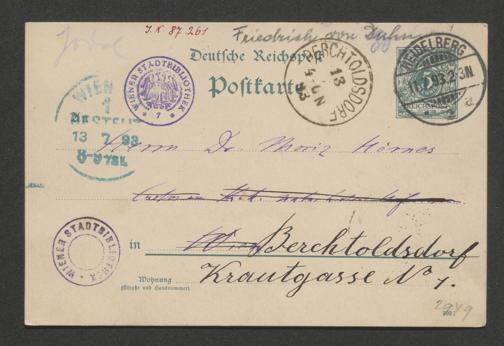 I.N. 87.261
Friedrich von Duhn
Deutsche Reichspost
Postkarte
WIENER STADTBIBLIOTHEK
* 7 *
BERCHTOLDSDORF
13
93
HEIDELBERG
93.2-3N
WIEN
1
BESTELLT
13 7 93
Herrn Dr. Moriz Hörnes
in Wien Berchtoldsdorf
WIENER STADTBIBLIOTHEK
Wohnung
(Straße und Hausnummer)
Krautgasse No 1.
2949